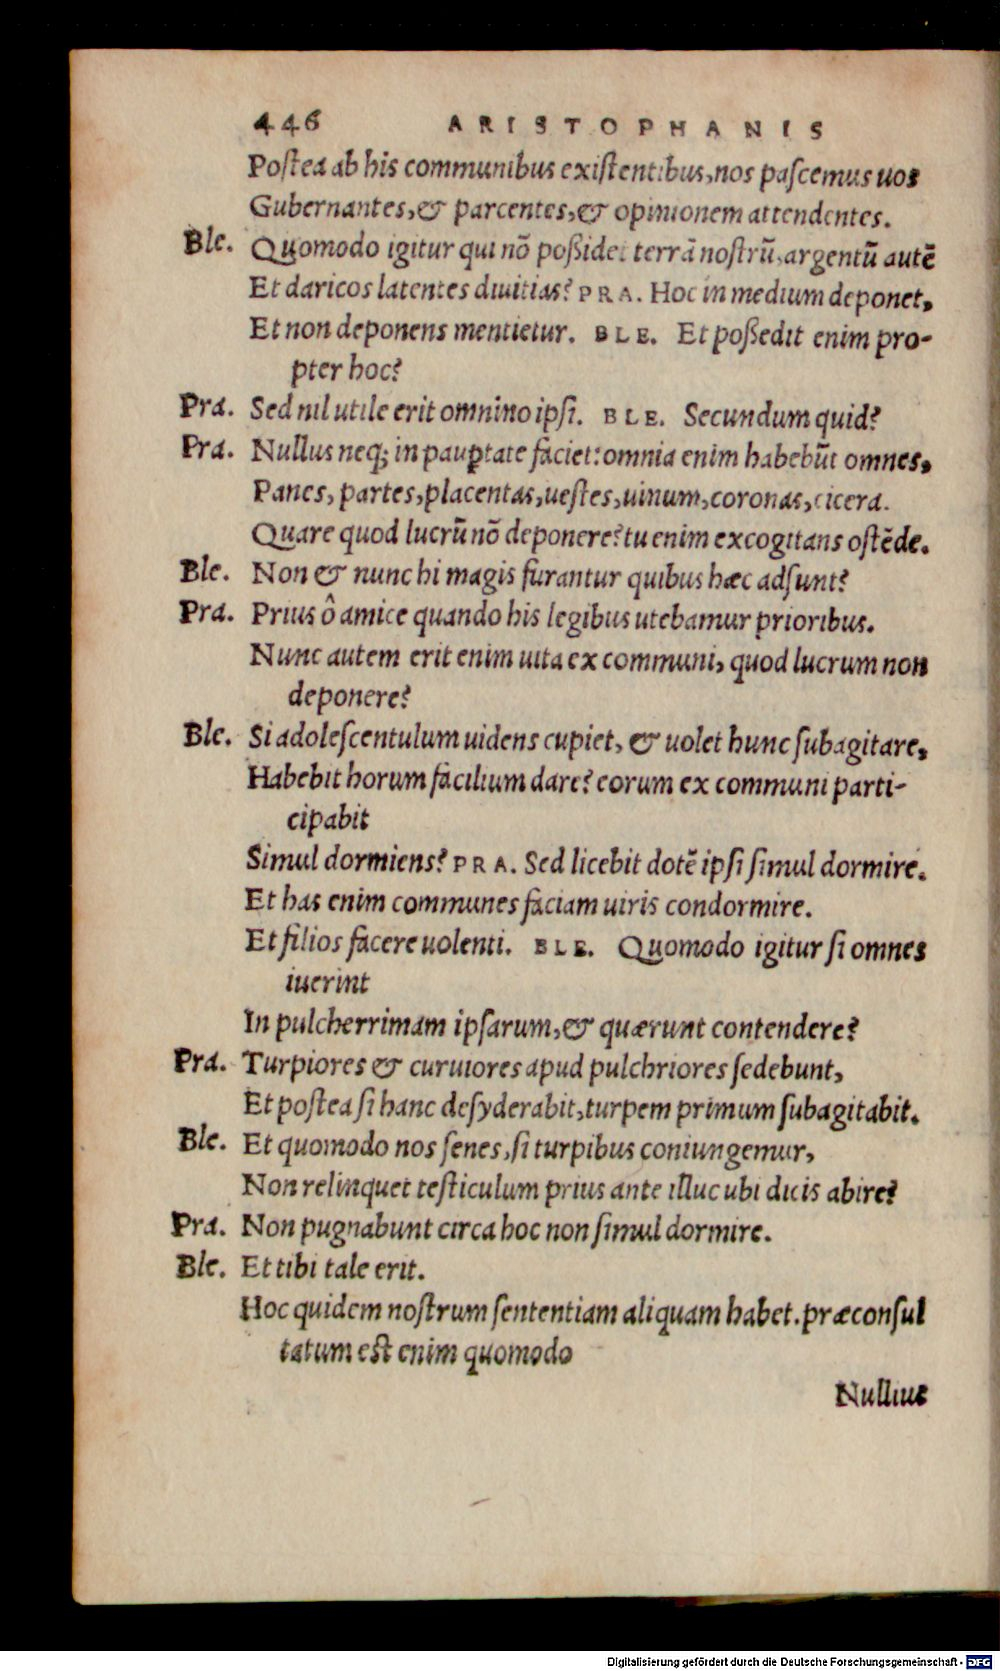 446 ARISTOPHANIS
Postea ab his communibus existentibus, nos pascemus uos
Gubernantes, & parcentes, & opinionem attendentes.
Ble. Quomodo igitur qui nõ poßidet terrã nostrũ, argentũ autẽ
Et daricos latentes diuitias? PRA. Hoc in medium deponet,
Et non deponens mentietur. BLE. Et poßedit enim pro-
pter hoc?
Pra. Sed nil utile erit omnino ipsi. BLE. Secundum quid?
Pra. Nullus neq; in paup̱tate faciet: omnia enim habebũt omnes,
Panes, partes, placentas, uestes, uinum, coronas, cicera.
Quare quod lucrũ nõ deponere? tu enim excogitans ostẽde.
Ble. Non & nunc hi magis furantur quibus hæc adsunt?
Pra. Prius ô amice quando his legibus utebamur prioribus.
Nunc autem erit enim uita ex communi, quod lucrum non
deponere?
Ble. Si adolescentulum uidens cupiet, & uolet hunc subagitare,
Habebit horum facilium dare? eorum ex communi parti-
cipabit
Simul dormiens? PRA. Sed licebit dotẽ ipsi simul dormire.
Et has enim communes faciam uiris condormire.
Et filios facere uolenti. BLE. Quomodo igitur si omnes
iuerint
In pulcherrimam ipsarum, & quærunt contendere?
Pra. Turpiores & curuiores apud pulchriores sedebunt,
Et postea si hanc desyderabit, turpem primum subagitabit.
Ble. Et quomodo nos senes, si turpibus coniungemur,
Non relinquet testiculum prius ante illuc ubi dicis abire?
Pra. Non pugnabunt circa hoc non simul dormire.
Ble. Et tibi tale erit.
Hoc quidem nostrum sententiam aliquam habet. præconsul
tatum est enim quomodo
Nullius
Digitalisierung gefördert durch die Deutsche Forschungsgemeinschaft - DFG